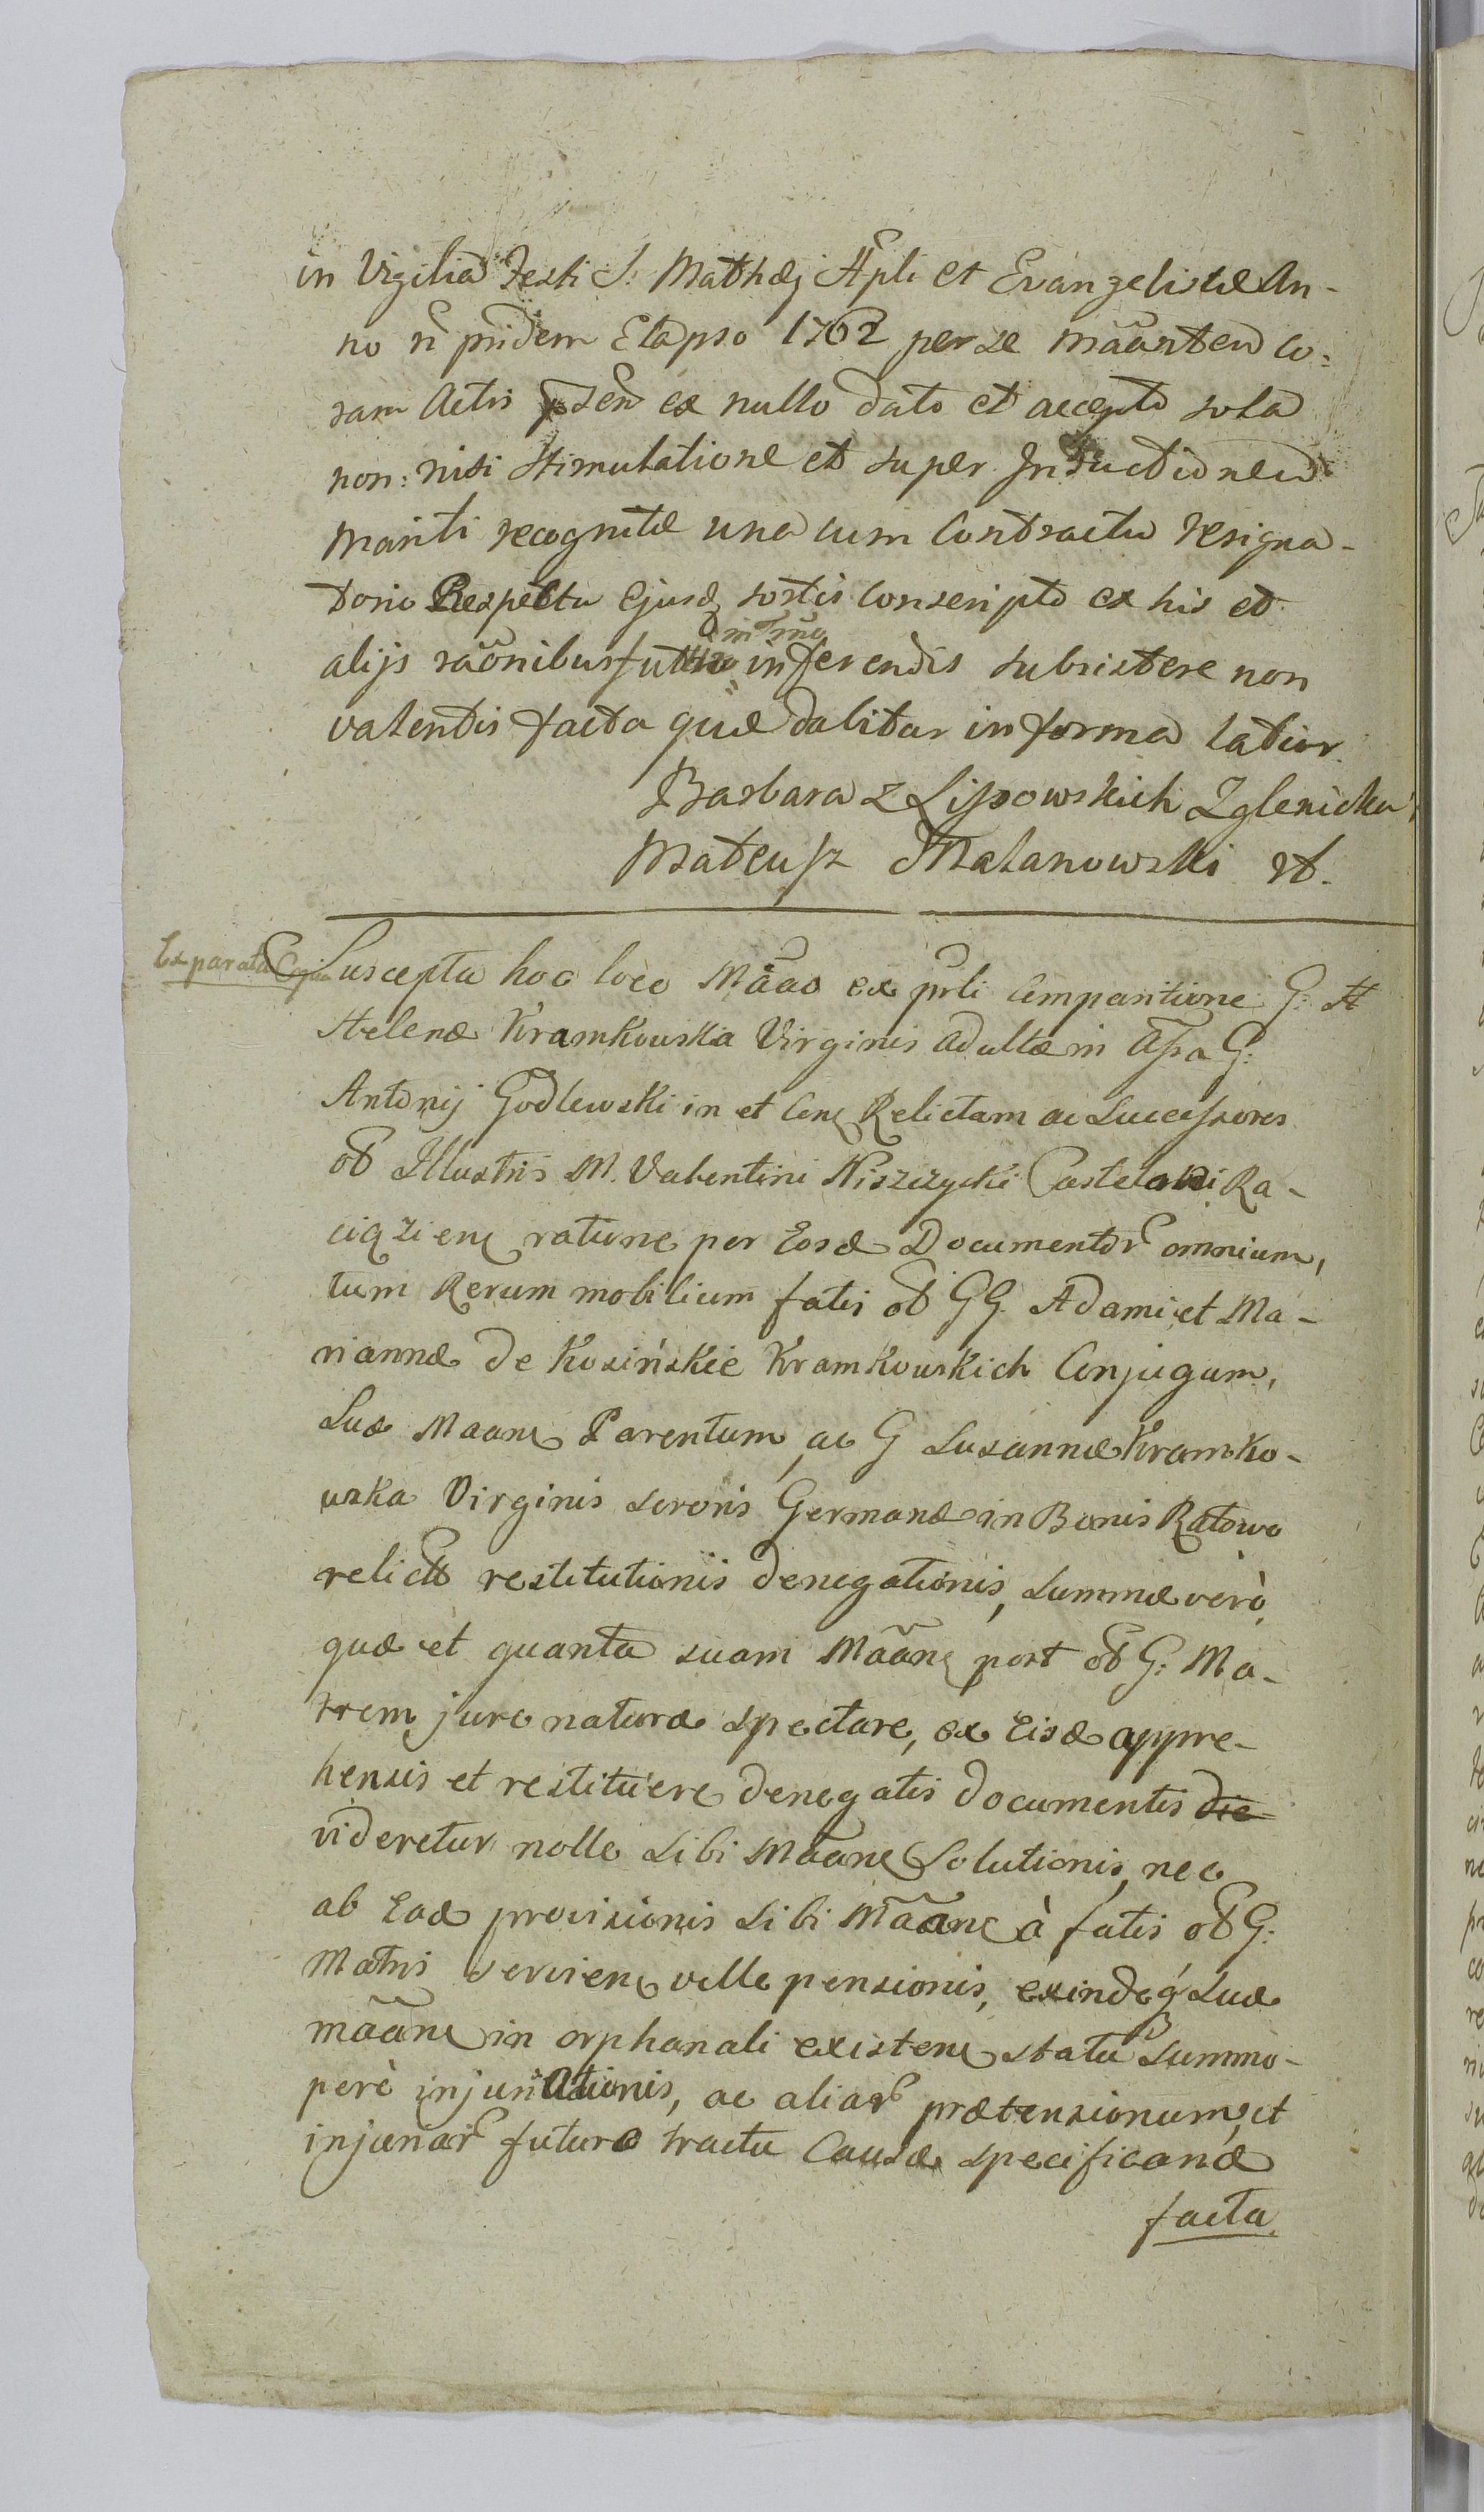 in Vigilia Festi S. Mathæj Apli et Evangelistæ An-
no n pridem Elapso 1762 per se Maantem co=
ram Actis psen ex nullo dato et accepto sola
non: nisi Stimulatione et super Inductionem
Mariti recognitæ una cum Contractu resigna-
torio Respectu ejusd sortis Conscripto ex his et
alijs raonibus futuro inferendis subsistere non
valentis facta quæ dabitur in forma latior.
Barbara z Lipowskich Zglenicka
Mateusz Malanowski
Exparata Copia
Suscepta hoc loco Maao ex prli Comparitione G: H
Helenæ Kramkouska Virginis adultæ in assa G:
Antonij Godlewski in et Cont Relictam ac Successores
ol Illustris M. Valentini Niszczycki Castelani Ra-
ciąziens ratione per Eosd Documentor omnium,
tum Rerum mobilium fatis ol GG. Adami et Ma-
riannæ de Kosińskie Kramkouskich Conjugum,
Suæ Maans Parentum, ac G Susannæ Kramko-
uska Virginis sororis Germanæ in Bonis Ratowo
relict restitutionis denegationis, Summæ verò,
quæ et quanta suam Maans post ol G: Ma-
trem jure naturæ spectare, ex Eisd appre-
hensis et restituere denegatis documentis die
videretur nolle Sibi Maans Solutionis, nec
ab Ead provisionis Sibi Maans à fatis ol G:
Matris serviens velle pensionis, exindeq Suæ
maans in orphanali existens statu Summo-
perè injuriationis, ac aliar prætensionum, et
injuriar futuro tractu Causæ specificand
facta